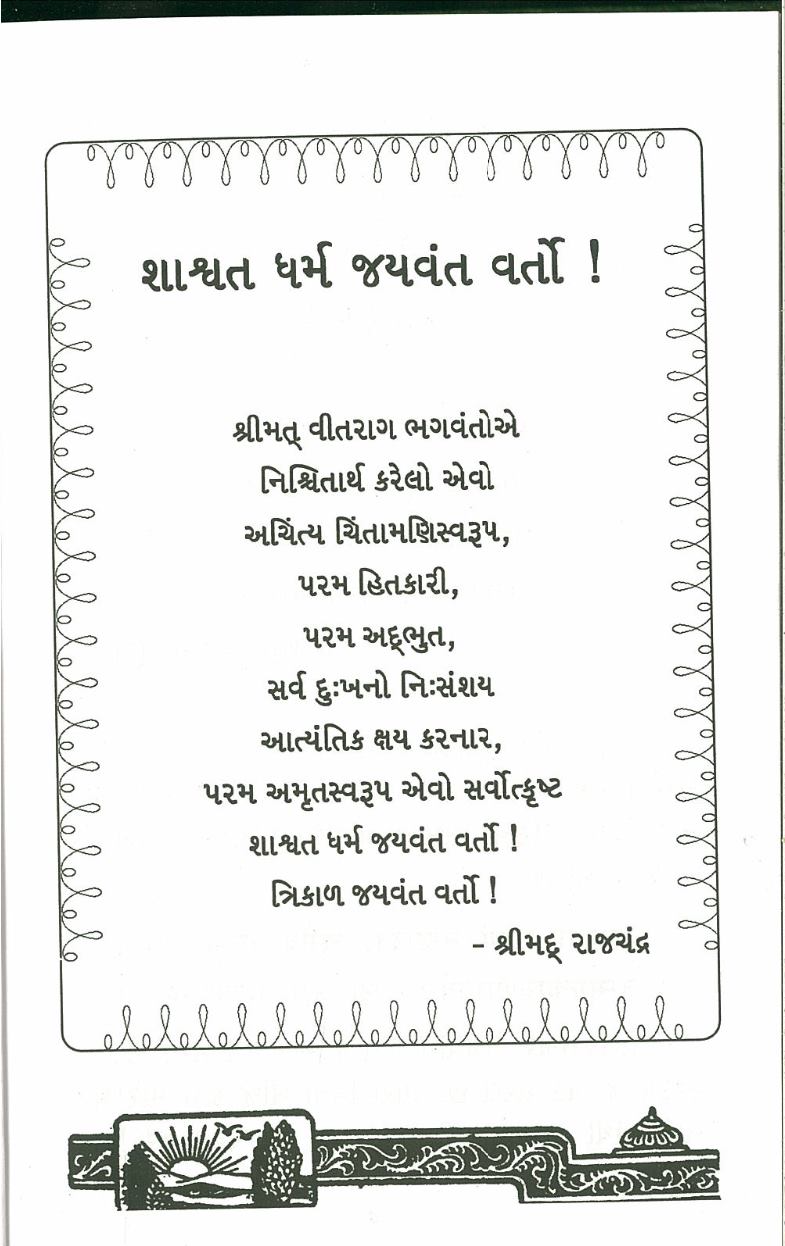 શાશ્વત ધર્મ જયવંત વર્તો !
શ્રીમત્ વીતરાગ ભગવંતોએ
નિશ્ચિતાર્થ કરેલો એવો
અચિંત્ય ચિંતામણિસ્વરૂપ,
પરમ હિતકારી,
પરમ અદ્ભુત,
સર્વ દુઃખનો નિઃસંશય
આત્યંતિક ક્ષય કરનાર,
પરમ અમૃતસ્વરૂપ એવો સર્વોત્કૃષ્ટ
શાશ્વત ધર્મ જયવંત વર્તો !
ત્રિકાળ જયવંત વર્તો !
- શ્રીમદ્ રાજચંદ્ર